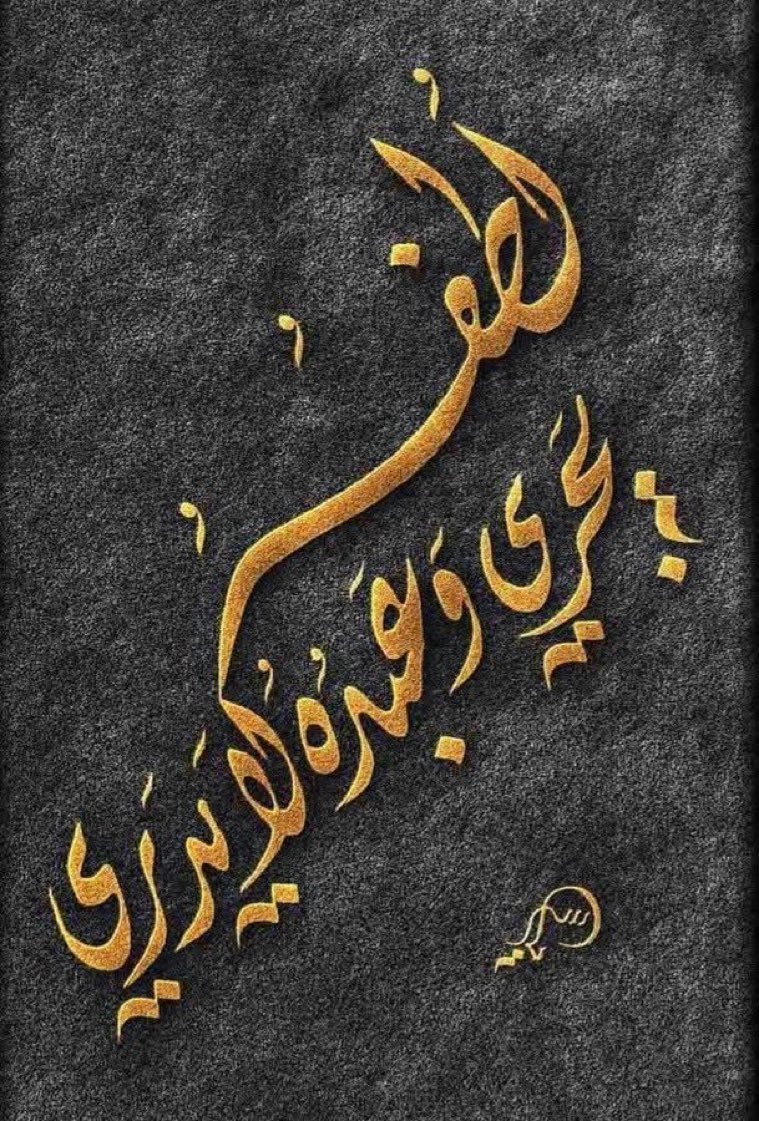 لُطفُهُ
يَجري وَعَبدُهُ لا يَدري